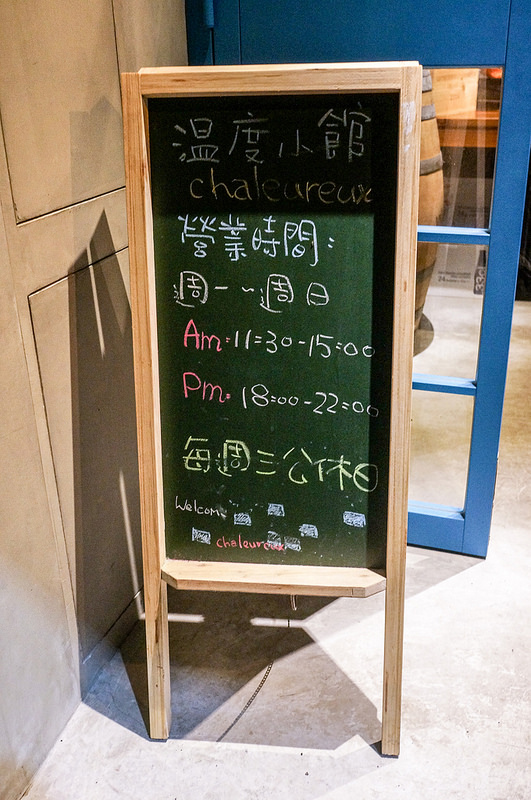 溫度小館
chaleureux
營業時間:
週一~週日
Am.11:30-15:00
Pm. 18:00-22:00
每週三公休日
Welcome
chaleureux